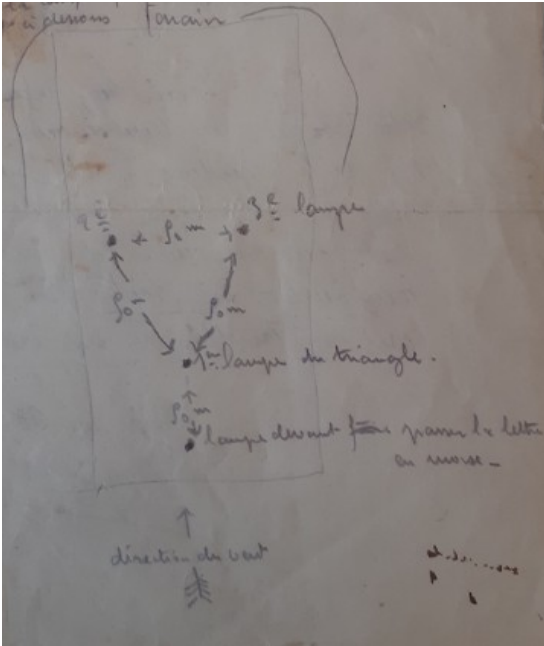 ci dessous terrain
2e 3e lampe
50 m
50 m 50 m
1re lampe du triangle.
50 m
lampe devant faire passer la lettre
en morse -
direction du vent